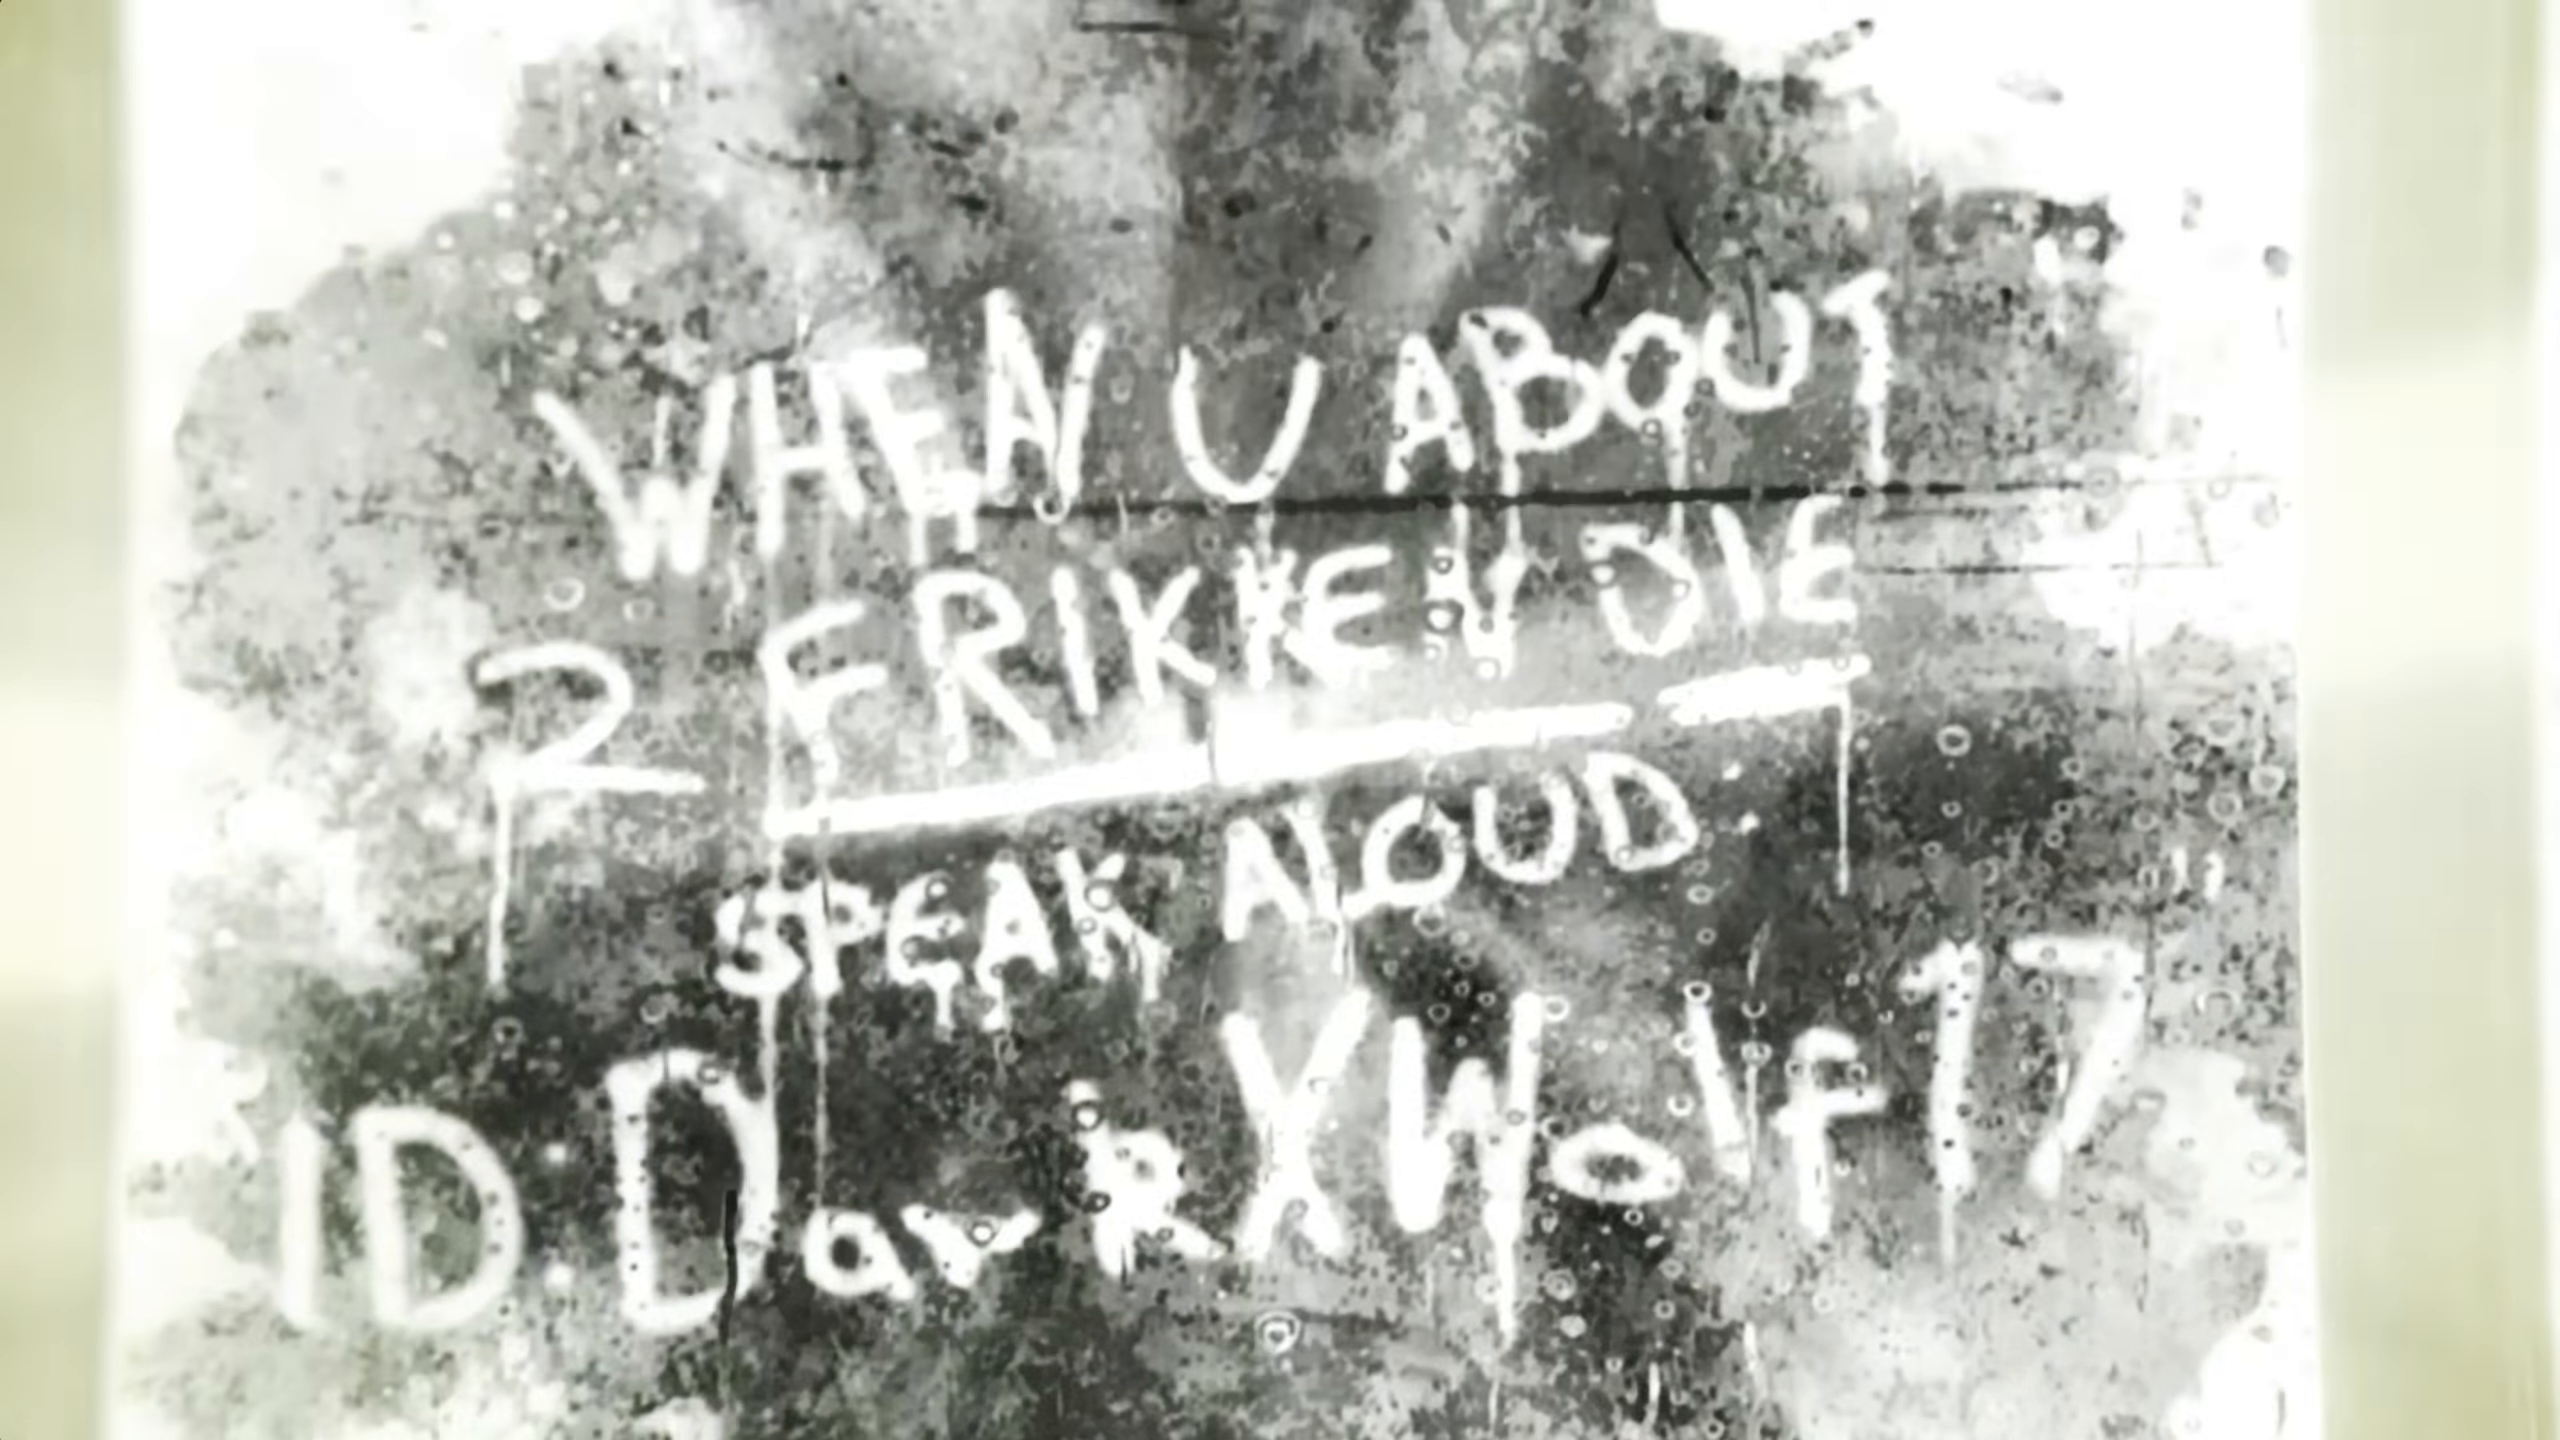 WHEN U ABOUT
2 FRIKKEN DIE
SPEAK ALOUD
ID DavRXWolf17